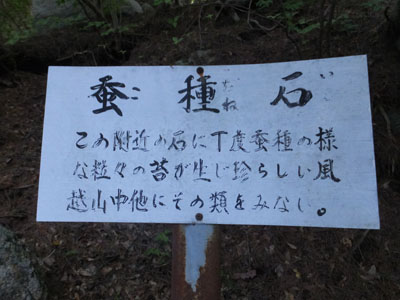 蚕種石
この附近の石に丁度蚕種の様
な粒々の苔が生じ珍らしい風
越山中他にその類をみない。